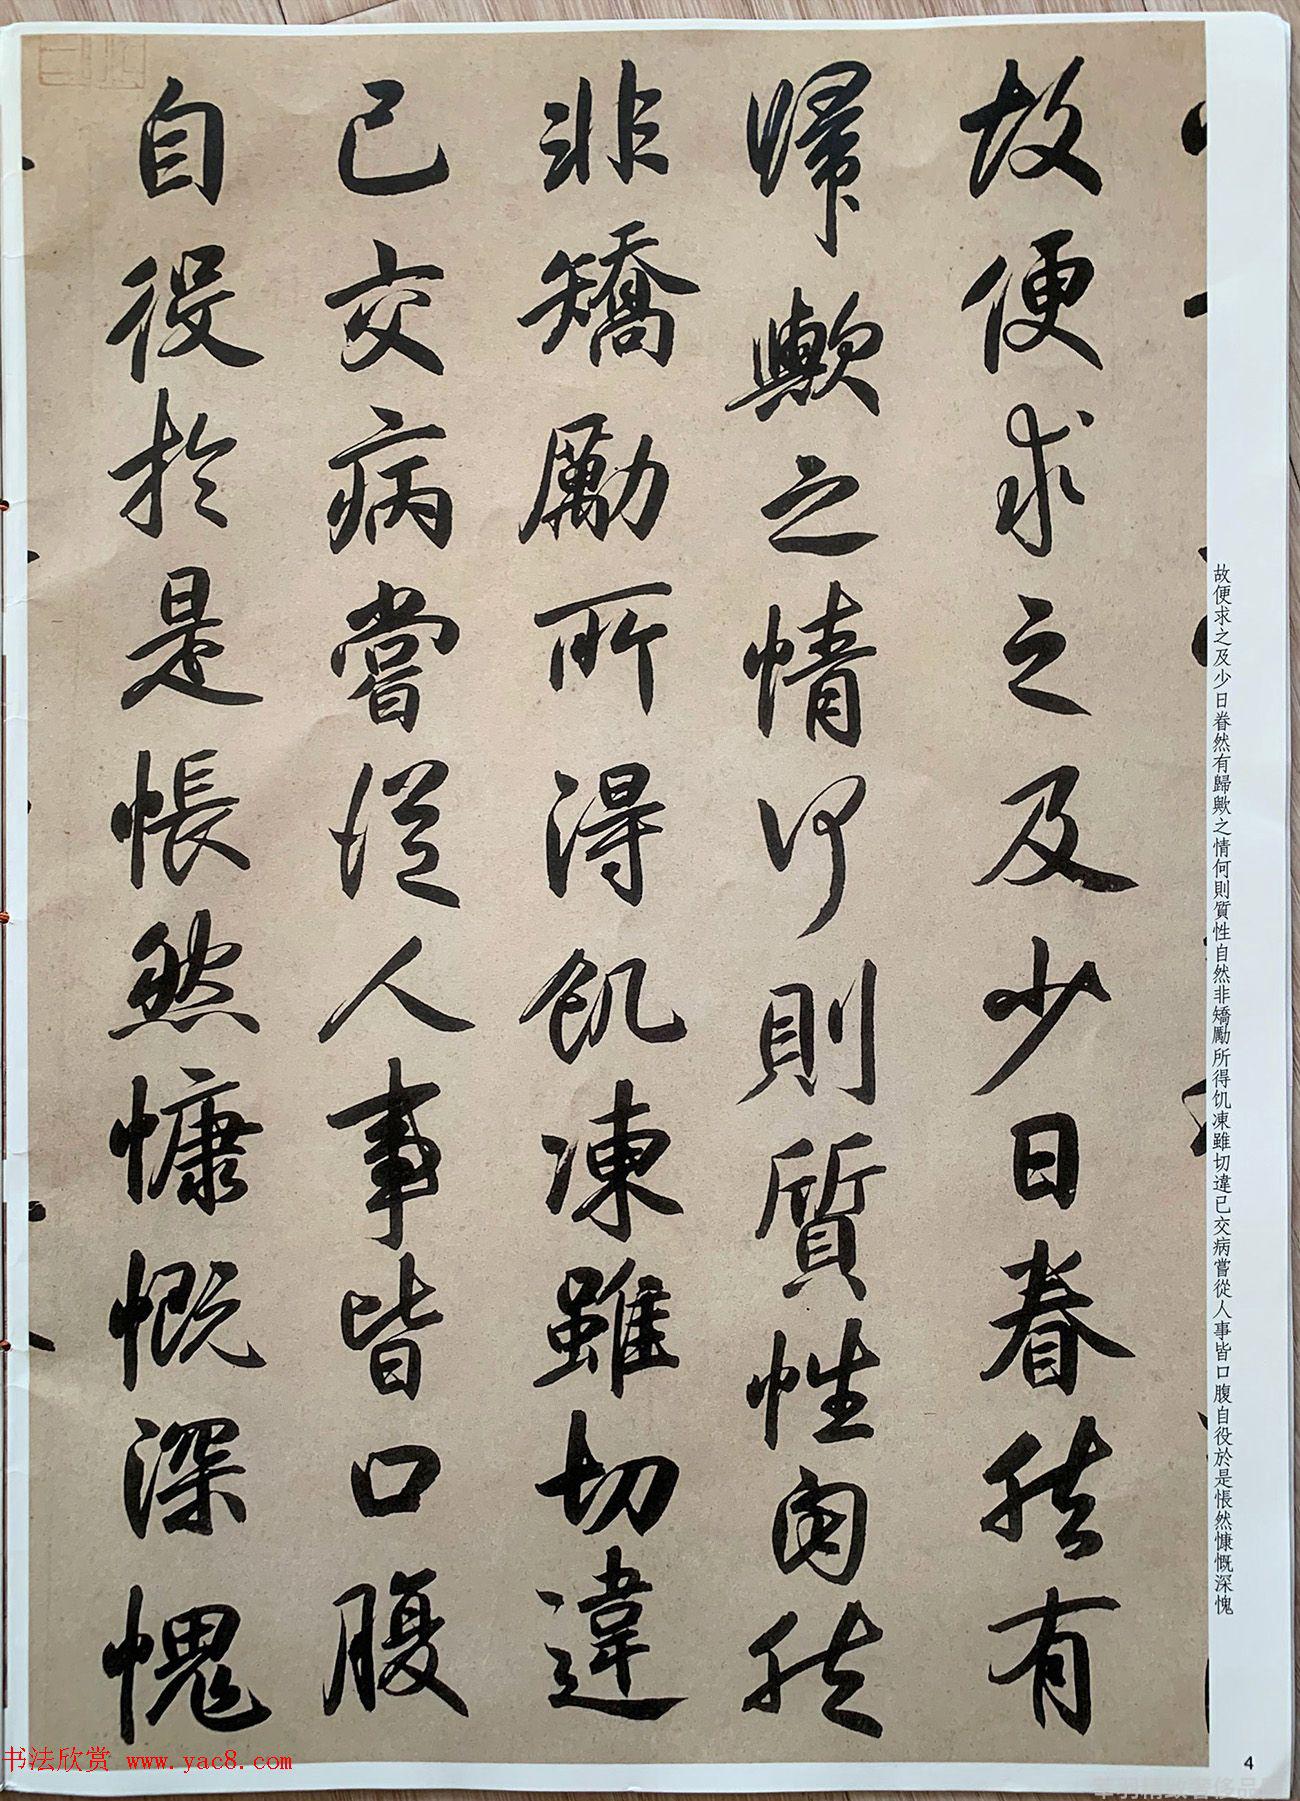 故便求之及少日眷然有
歸歟之情何則質性自然
非矯勵所得飢凍雖切違
已交病嘗從人事皆口腹
自役於是悵然慷慨深愧
故便求之及少日眷然有歸歟之情何則質性自然非矯勵所得饥凍雖切違已交病嘗從人事皆口腹自役於是悵然慷慨深愧
4
书法欣赏 www.yac8.com